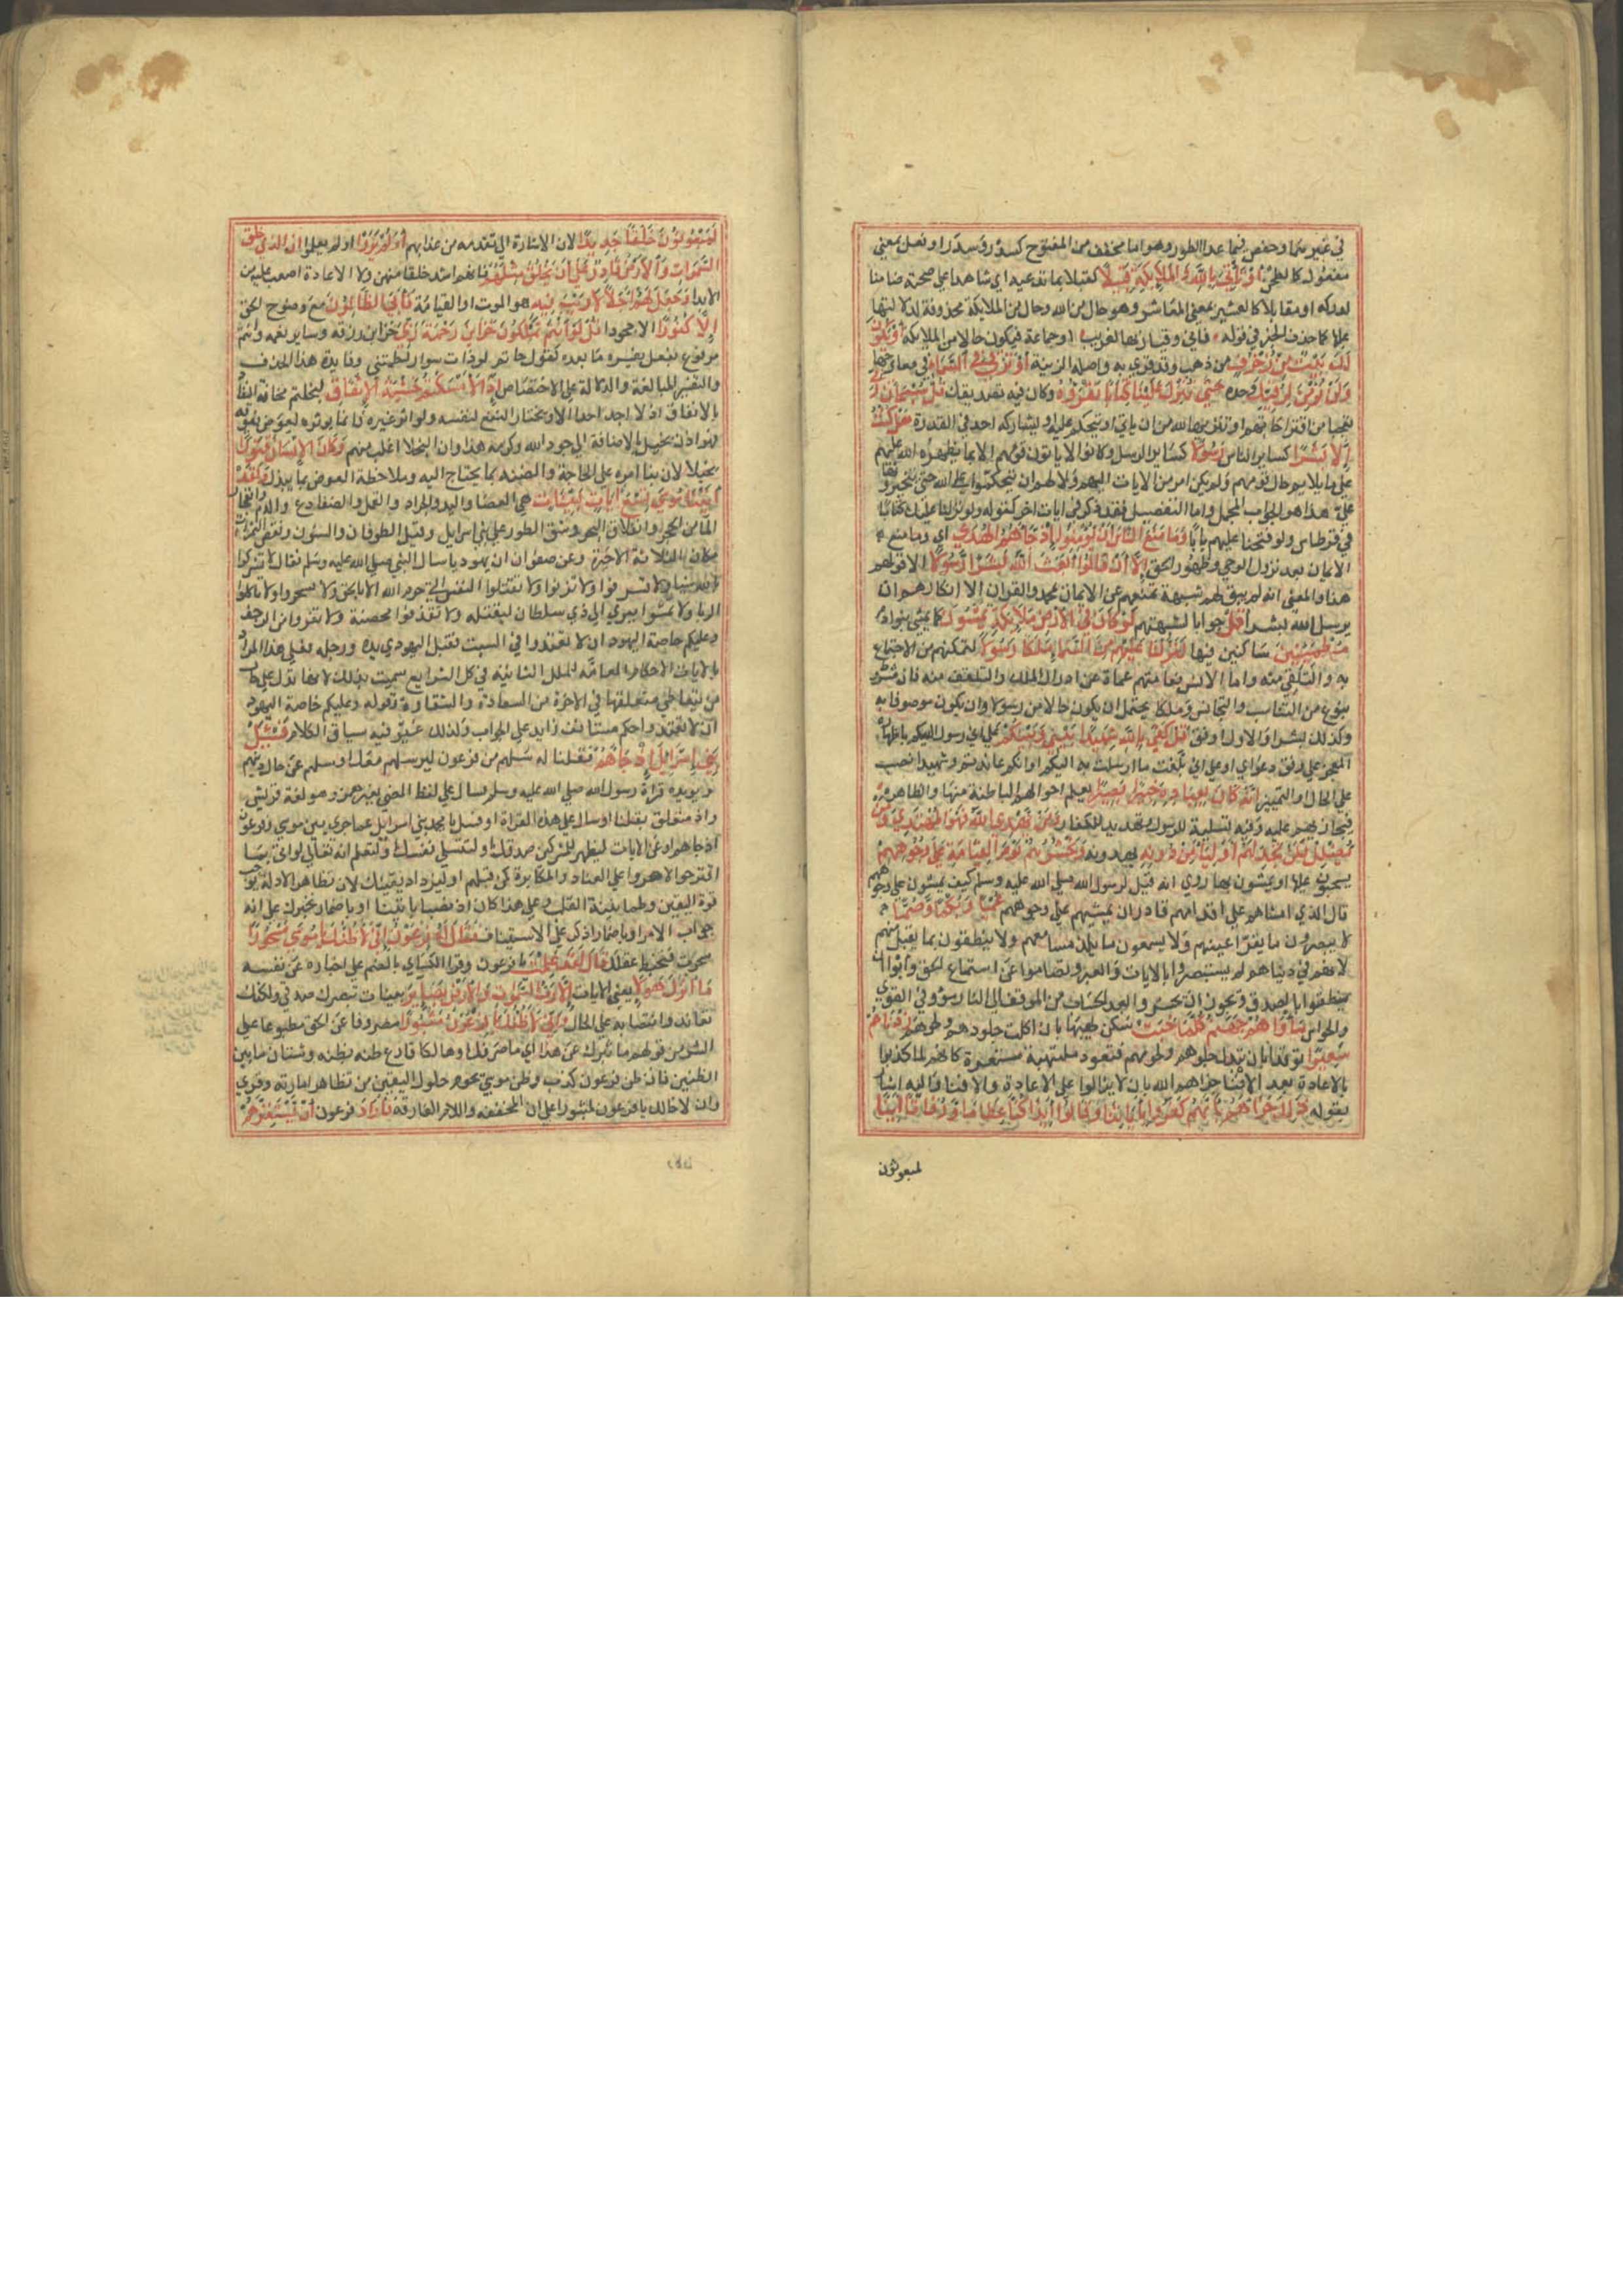 في غير هما وحفص فيما عدا الطور وهو اما مخفف من المفتوح كسدر وسدر او فعل بمعنى
مفعول كالطحن او تاتي بالله والملايكة قبيلا كفيلا بما تدعيه اي شاهدا على صحته ضامنا
لدركه او مقابلا كالعشير بمعنى المعاشر وهو حال من الله وحال من الملايكة محذوفة لدلالتها
عليها كما حذف الخبر في قوله فاني وقيار بها لغريب او جماعة فيكون حالا من الملايكة او يكون
لك بيت من زخرف من ذهب وقد قري به واصله الزينة او ترقى في السماء في معارجها
ولن نؤمن لرقيك وحده حتى تنزل علينا كتابا نقرؤه وكان فيه تصديقك قل سبحان ربي
تعجبا من اقتراحاتهم او تنزيها لله من ان ياتي او يتحكم عليه او يشاركه احد في القدرة هل كنت
إلا بشرا كساير الناس رسولا كساير الرسل وكانوا لا ياتون قومهم الا بما يظهره الله عليهم
على ما يلايم حال قومهم ولم يكن امر من الايات اليهم ولا لهم ان يتحكموا على الله حتى يتخيروها
علي هذا هو الجواب المجمل واما التفصيل فقد ذكر في ايات اخر كقوله ولو نزلنا عليك كتابا
في قرطاس ولو فتحنا عليهم بابا وما منع الناس ان يؤمنوا إذ جاءهم الهدى اي وما منعهم
الايمان بعد نزول الوحي وظهور الحق إلا أن قالوا أبعث الله بشرا رسولا الا قولهم
هذا والمعنى انه لم يبق لهم شبهة تمنعهم عن الايمان بمحمد والقران الا انكارهم ان
يرسل الله بشرا قل جوابا لشبهتهم لو كان في الأرض ملايكة يمشون كما يمشي بنوا ادم
مطمئنين ساكنين فيها لنزلنا عليهم من السماء ملكا رسولا لتمكنهم من الاجتماع
به والتلقي منه واما الانس فعامتهم عماة عن ادراك الملك والتلقف منه فان مشروط
بنوع من التناسب والتجانس وملكا يحتمل ان يكون حالا من رسولا وان يكون موصوفا به
وكذلك بشرا والاول اوفق قل كفى بالله شهيدا بيني وبينكم على اني رسول اليكم باظهاره
المعجز على وفق دعواي او على اني بلغت ما ارسلت به اليكم وانكم عاندتم وشهيدا نصب
على الحال او التمييز انه كان بعباده خبيرا بصيرا يعلم احوالهم الباطنة منها والظاهرة
فيجازيهم عليه وفيه تسلية للرسول وتهديد للكفار ومن يهدي الله فهو المهتدي ومن
يضلل فلن تجد لهم أولياء من دونه يهدونه ونحشرهم يوم القيامة على وجوههم
يسحبون عليها او يمشون بها روي انه قيل لرسول الله صلى الله عليه وسلم كيف يمشون على وجوههم
قال الذي امشاهم على اقدامهم قادر ان يمشيهم على وجوههم عميا وبكما وصما
لا يبصرون ما يقر اعينهم ولا يسمعون ما يلذ مسامعهم ولا ينطقون بما يقبل منهم
لانهم في دنياهم لم يستبصروا بالايات والعبر وتصاموا عن استماع الحق وابوا ان
ينطقوا بالصدق ويجوز ان يحشروا بعد الحساب من الموقف الى النار مؤوفي القوى
والحواس ماواهم جهنم كلما خبت سكن لهبها بان اكلت جلودهم ولحومهم زدناهم
سعيرا توقدا بان نبدل جلودهم ولحومهم فتعود ملتهبة مستعرة كانهم لما كذبوا
بالاعادة بعد الافناء جزاهم الله بان لا يزالوا على الاعادة والافنا واليه اشار
بقوله ذلك جزاؤهم بأنهم كفروا بآياتنا وقالوا أئذا كنا عظاما ورفاتا أئنا
لمبعوثون
لمبعوثون خلقا جديدا لان الاشارة الى تقدمه من عذابهم أولم يروا اولم يعلموا ان الذي خلق
السموات والأرض قادر على أن يخلق مثلهم فانهم اشد خلقا منهن ولا الاعادة اصعب عليه من
الابدا وجعل لهم أجلا لا ريب فيه هو الموت او القيامة فأبى الظالمون مع وضوح الحق
إلا كفورا الا جحودا قل لو أنتم تملكون خزاين رحمة ربي خزاين رزقه وساير نعمه وانتم
مرفوع بفعل يفسره ما بعده كقول حاتم لو ذات سوار لطمتني وفايدة هذا الحذف
والتفسير المبالغة والدلالة على الاختصاص إذا لأمسكتم خشية الإنفاق لبخلتم مخافة النفاد
بالانفاق اذ لا احد الا ويختار النفع لنفسه ولو اثر غيره فانما يوثره لعوض يفوقه
فهو اذن بخيل بالاضافة الى جود الله وكرمه هذا وان البخلا اغلب منهم وكان الإنسان قتورا
بخيلا لان بنا امره على الحاجة والضنة بما يحتاج اليه وملاحظة العوض بما يبذل ولقد
آتينا موسى تسع آيات بينات هي العصا واليد والجراد والقمل والضفادع والدم وانفجار
الماء من الحجر وانفلاق البحر ونتق الطور على بني اسرايل وقيل الطوفان والسنون ونقص الثمرات
مكان الثلاثة الاخيرة وعن صفوان ان يهوديا سال النبي صلى الله عليه وسلم فقال لا تشركوا
بالله شيئا ولا تسرفوا ولا تزنوا ولا تقتلوا النفس التي حرم الله الا بالحق ولا تسحروا ولا تاكلوا
الربا ولا تمشوا ببري الى ذي سلطان ليقتله ولا تقذفوا محصنة ولا تفروا من الزحف
وعليكم خاصة اليهود ان لا تعتدوا في السبت فقبل اليهودي يده ورجله فعلى هذا المراد
بالايات الاحكام العامة للملل الثابتة في كل الشرايع سميت بذلك لانها تدل على حال
من يتعاطى متعلقها في الاخرة من السعادة والشقاوة وقوله وعليكم خاصة اليهود
ان لا تعتدوا حكم مستانف زايد على الجواب ولذلك غير فيه سياق الكلام فسئل
بني إسرائيل إذ جاءهم فقلنا له سلهم من فرعون ليرسلهم معك او سلهم عن حال دينهم
ويويده قراة رسول الله صلى الله عليه وسلم فسال على لفظ المضي بغير همز وهو لغة قريش
واذ متعلق بقلنا او سال على هذه القراة او فسل يا محمد بني اسرايل عما جرى بين موسى وفرعون
اذ جاهم او عن الايات ليظهر للمشركين صدقك ولتتسلى نفسك ولتعلم انه تعالى لو اتى بما
اقترحوا لاصروا على العناد والمكابرة كمن قبلهم او ليزداد يقينك لان تظاهر الادلة يوجب
قوة اليقين وطمانينة القلب وعلى هذا كان اذ نصبا باتينا او باضمار يخبروك على انه
جواب الامر او باضمار اذكر على الاستيناف فقال له فرعون إني لأظنك يا موسى مسحورا
سحرت فتخبط عقلك قال لقد علمت يا فرعون وقرا الكسائي بالضم على اخباره عن نفسه
ما أنزل هؤلاء يعني الايات إلا رب السموات والأرض بصاير بينات تبصرك صدقي ولكنك
تعاند وانتصابه على الحال وإني لأظنك يا فرعون مثبورا مصروفا عن الحق مطبوعا على
الشر من قولهم ما ثبرك عن هذا اي ما صرفك او هالكا قارع ظنه بظنه وشتان ما بين
الظنين فان ظن فرعون كذب وظن موسى يحوم حول اليقين من تظاهر اماراته وقري
وان اخالك يا فرعون لمثبورا على ان المخففة واللام الفارقة فأراد فرعون أن يستفزهم